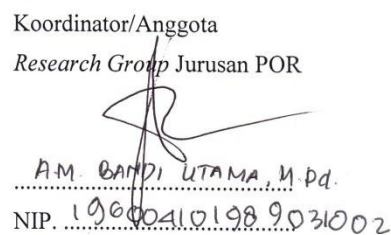 Koordinator/Anggota
Research Group Jurusan POR
A.M. BANDI UTAMA, M.Pd.
NIP. 196004101989031002